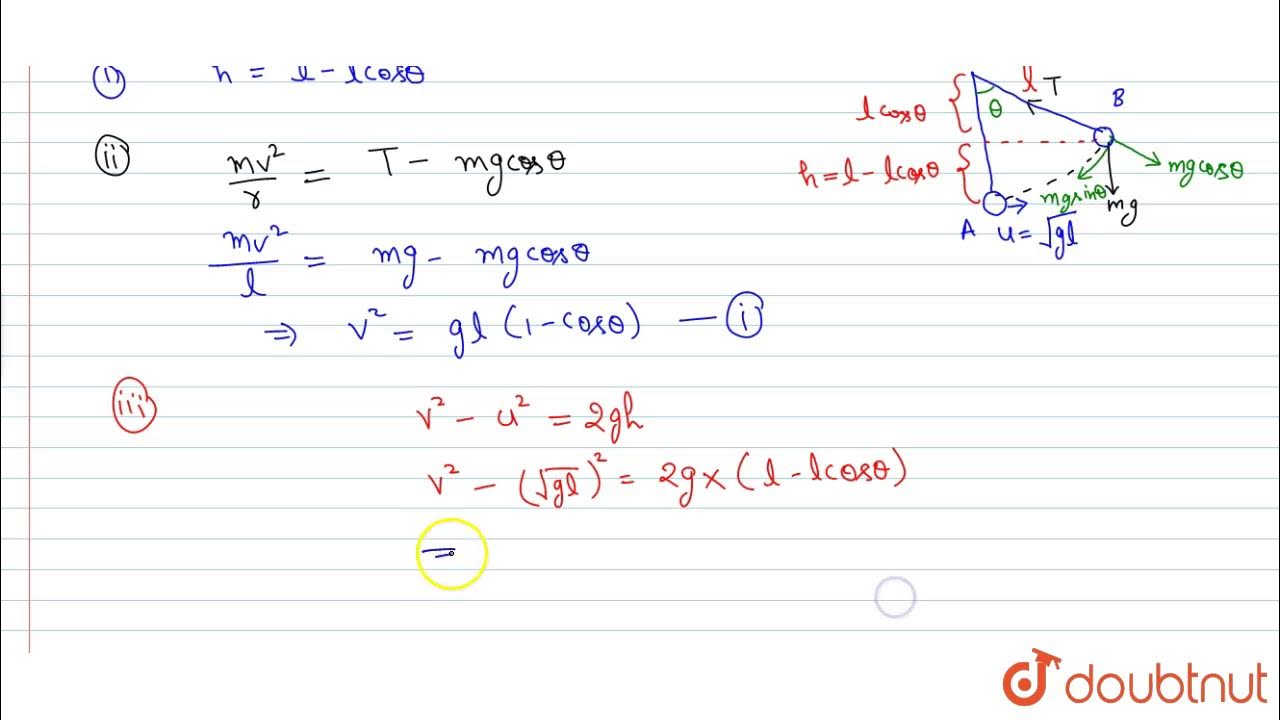 (i) h = l - lcosθ
(ii) mv²/r = T - mgcosθ
mv²/l = mg - mgcosθ
⇒ v² = gl (1-cosθ) — (i)
(iii) v² - u² = 2gh
v² - (√gl)² = 2g × (l - lcosθ)
=
l T
B
lcosθ
θ
h = l - lcosθ
mgcosθ
mgsinθ
mg
A u = √gl
doubtnut